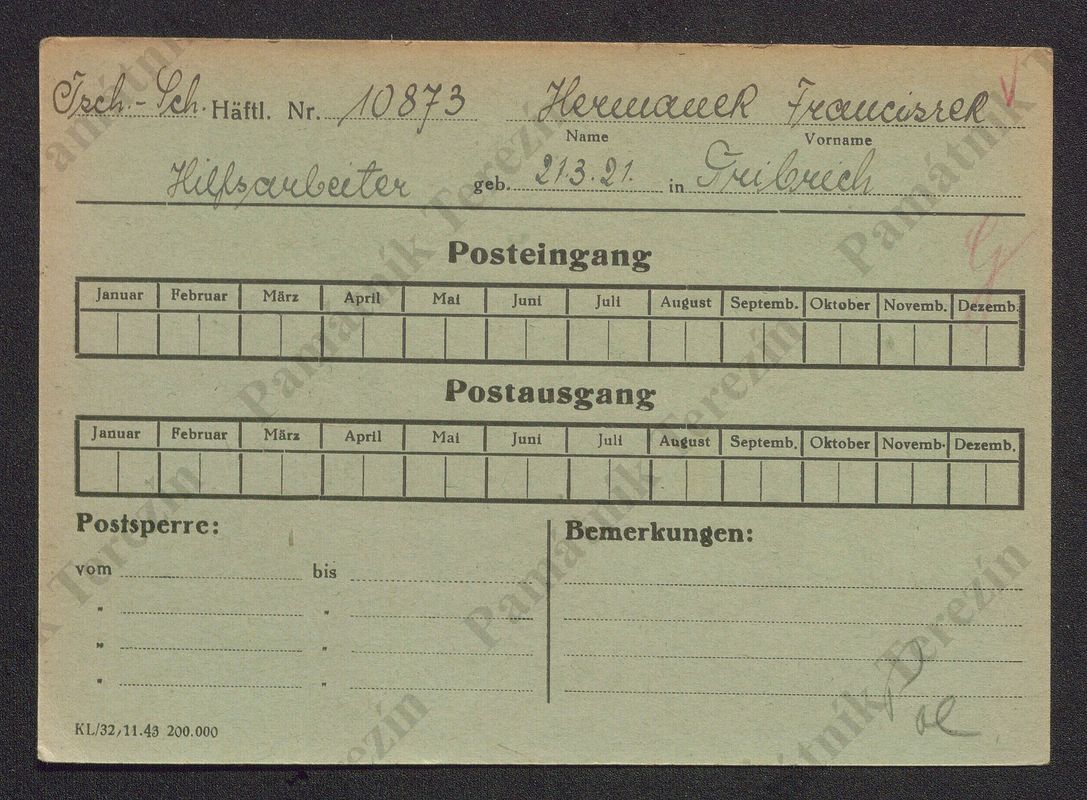 Tsch.-Sch. Häftl. Nr. 10873 Hermanek Franciszek
Name Vorname
Hilfsarbeiter geb. 21.3.21. in Tribrich
Posteingang
Januar Februar März April Mai Juni Juli August Septemb. Oktober Novemb. Dezemb.
Postausgang
Januar Februar März April Mai Juni Juli August Septemb. Oktober Novemb. Dezemb.
Postsperre: Bemerkungen:
vom bis
" "
" "
" "
KL/32, 11.43 200.000
Památník Terezín